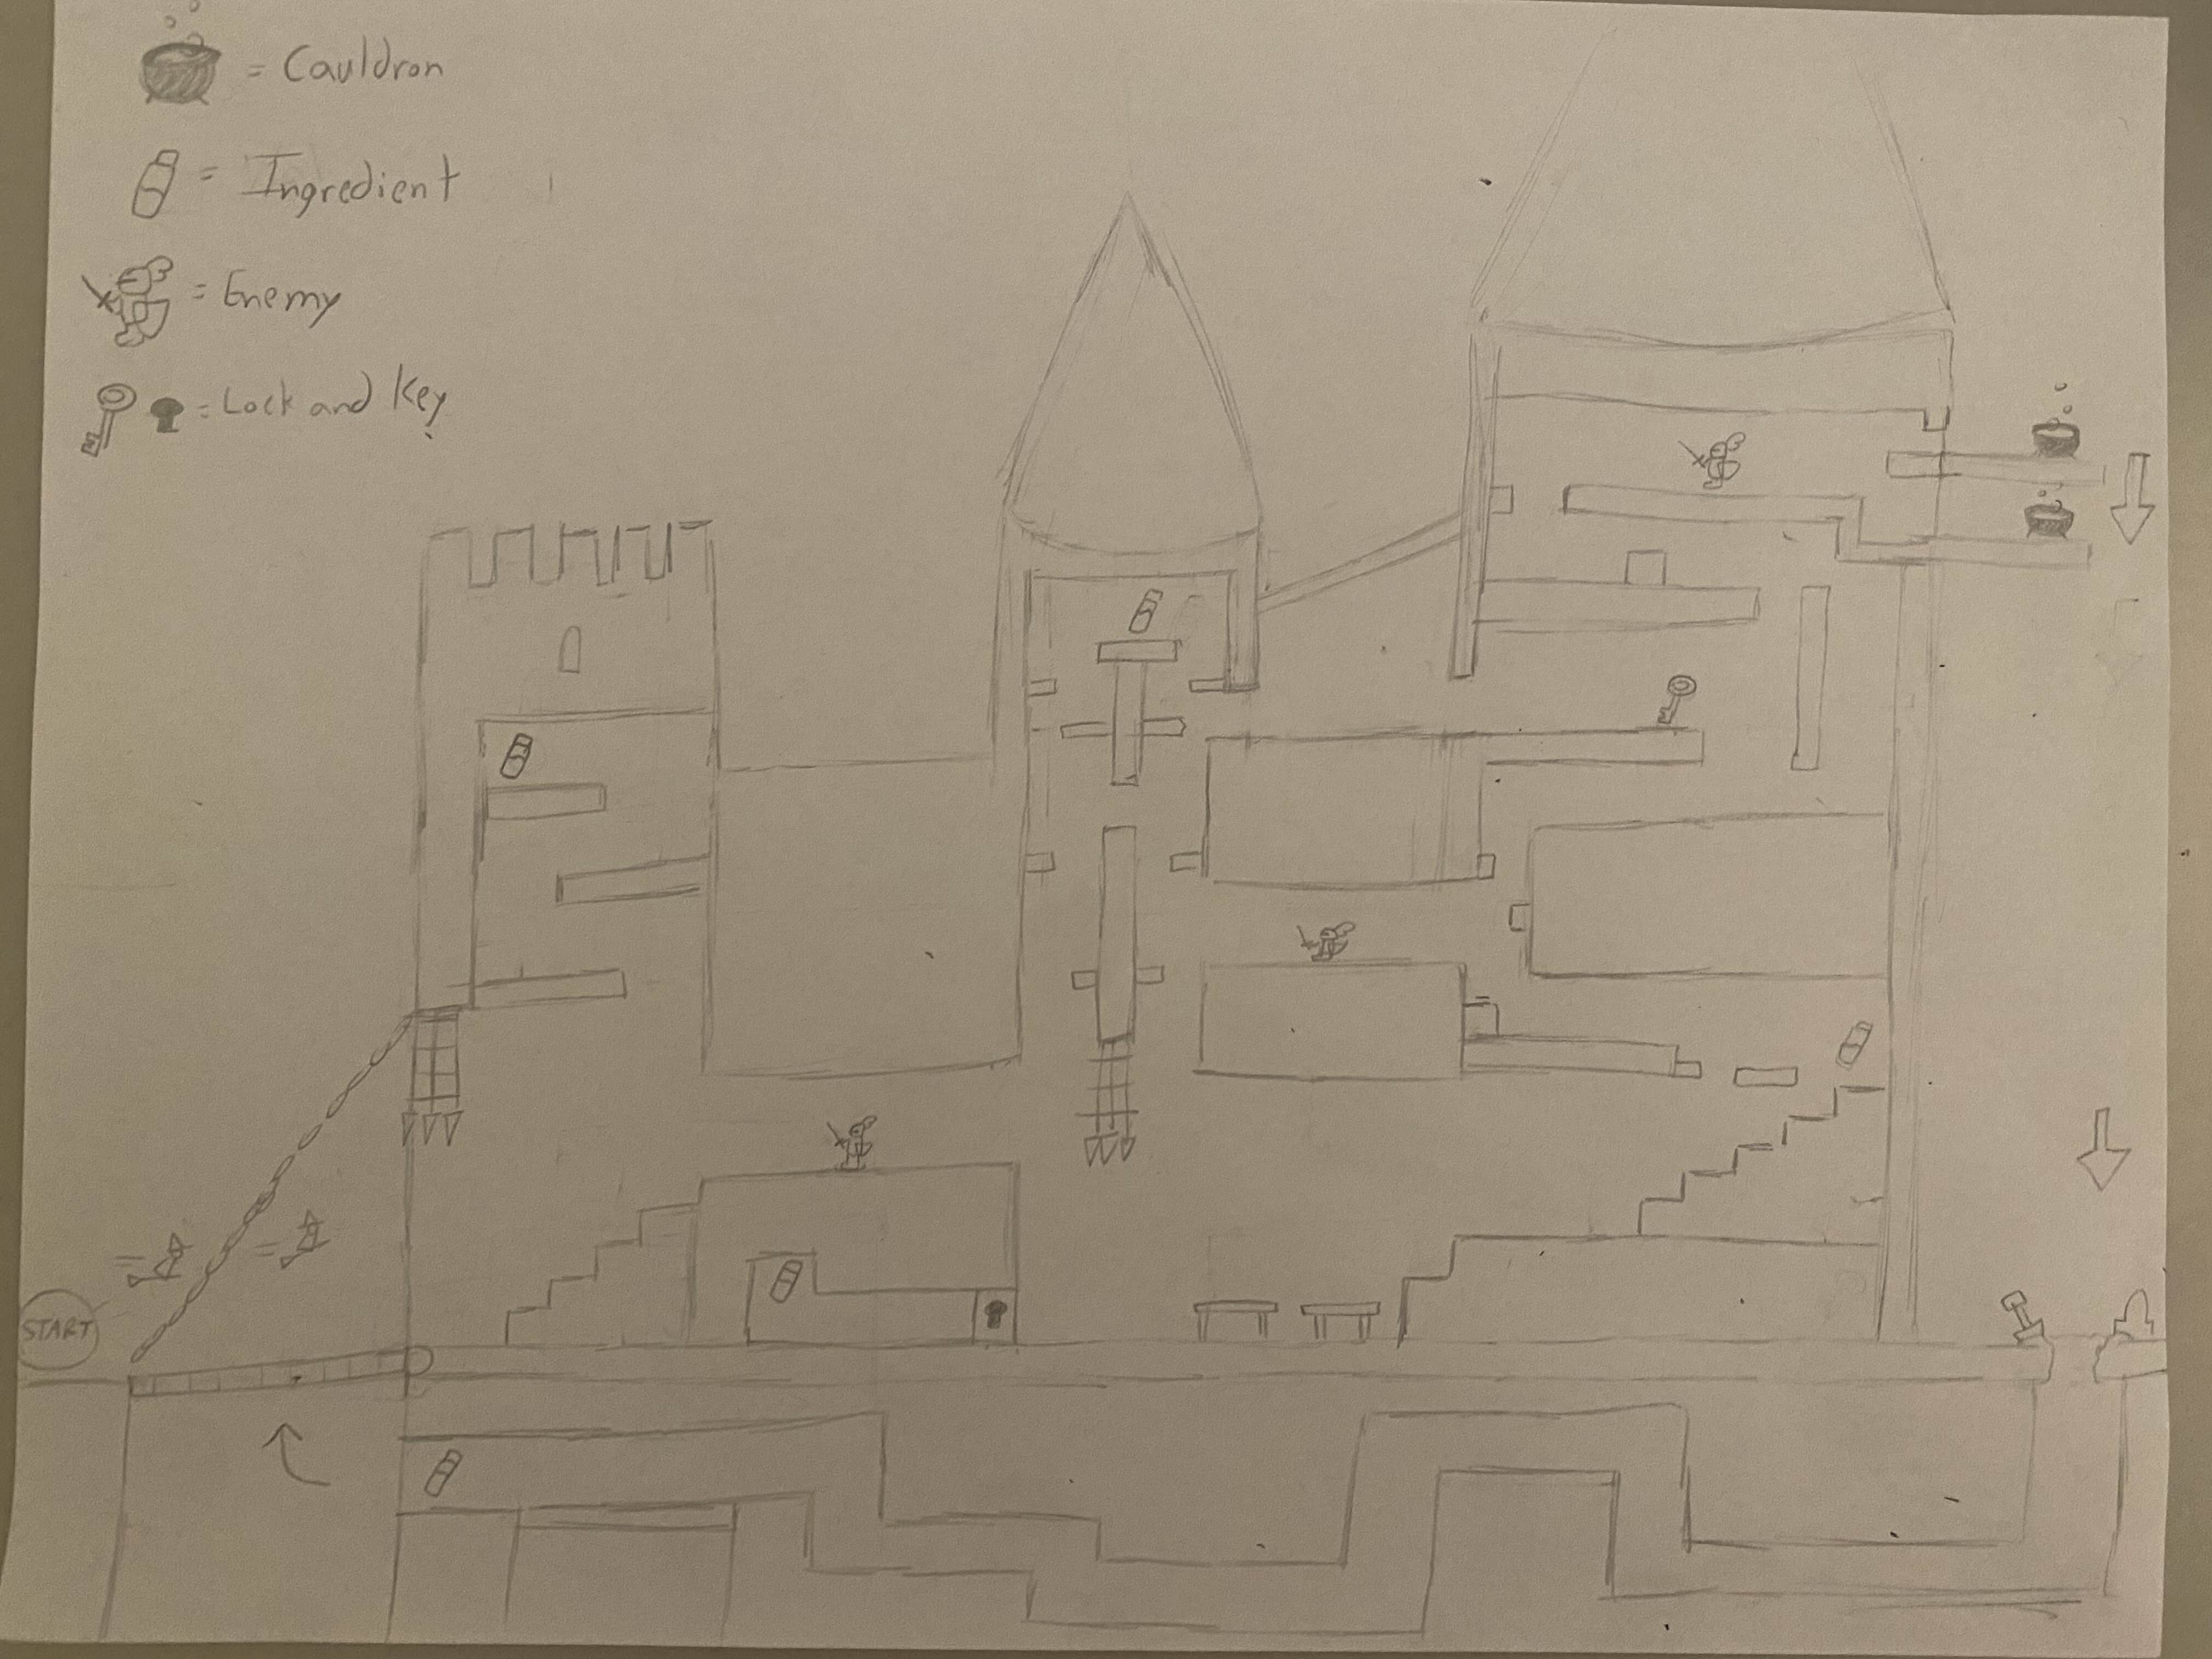 = Cauldron
= Ingredient
= Enemy
= Lock and Key
START